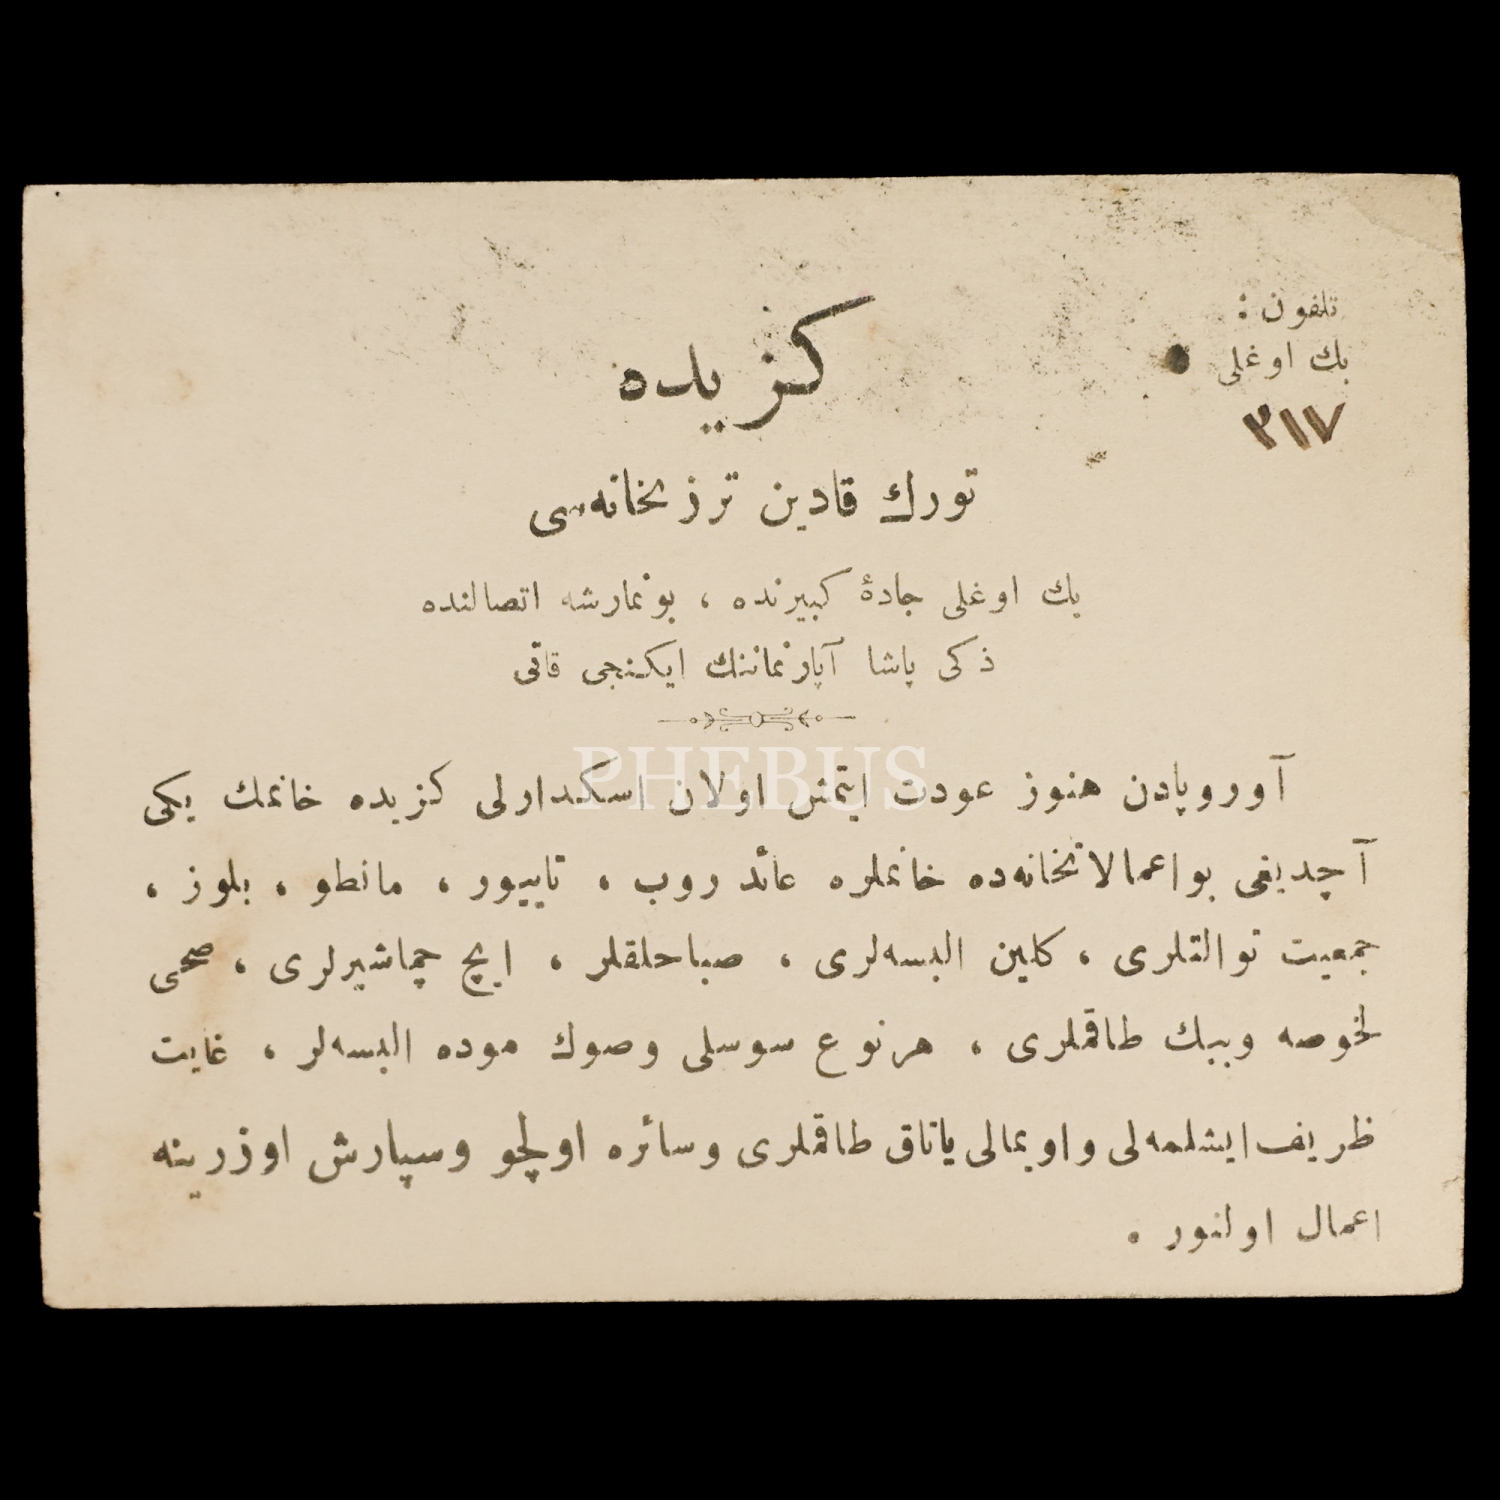 تلفون :
بك اوغلی
٣١٧
كزیده
تورك قادین ترزیخانه‌سی
بك اوغلی جادهٔ كبیرنده ، بونمارشه اتصالنده
ذكی پاشا آپارتماننك ایكنجی قاتی
PHEBUS
آوروپادن هنوز عودت ایتمش اولان اسكدارلی كزیده خانمك یكی
آچدیغی بو اعمالاتخانه‌ده خانملره عائد روب ، تاییور ، مانطو ، بلوز ،
جمعیت توالتلری ، كلین البسه‌لری ، صباحلقلر ، ایچ چماشیرلری ، صحی
لخوصه وببك طاقملری ، هرنوع سوسلی وصوك موده البسه‌لر ، غایت
ظریف ایشلمه‌لی واویمالی یاتاق طاقملری وسائره اولچو وسپارش اوزرینه
اعمال اولنور .